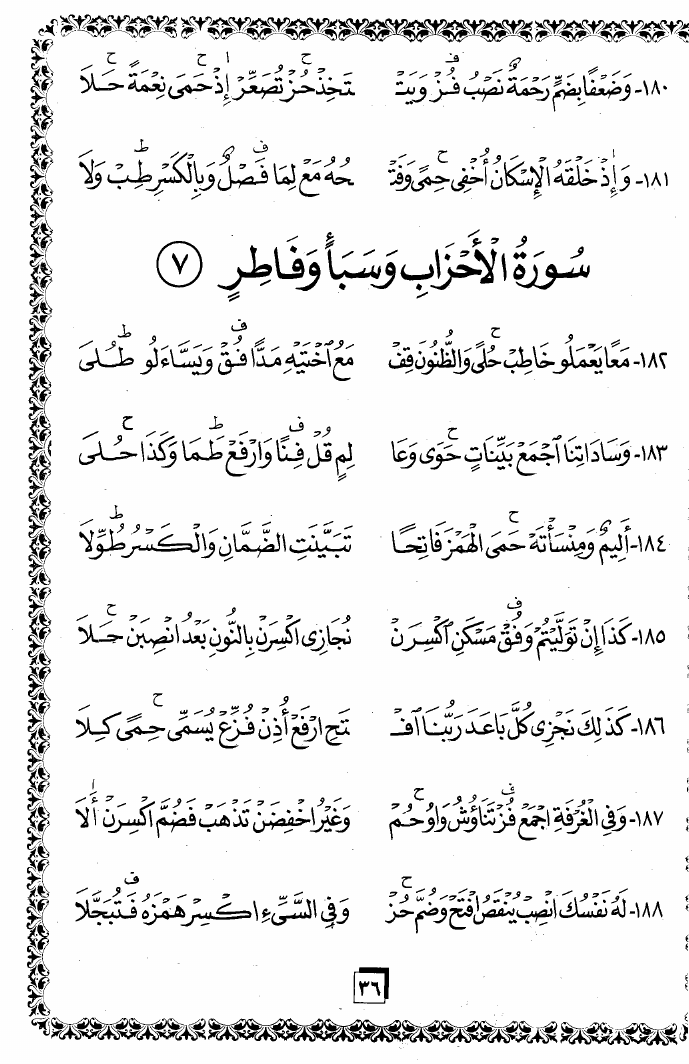 ١٨٠- وَضَعْفًا بِضَمٍّ رَحْمَةٌ نَصْبُ فُـزْ وَيَتْـ تَخِذْ حُزْ تُصَعِّرْ إِذْ حَمَى نِعْمَةً حَـلَا
١٨١- وَإِذْ خَلْقَهُ الْإِسْكَانُ أُخْفِي حِمًى وَفَتْـ ـحُهُ مَعْ لِمَا فَـصْلٌ وَبِالْكَسْرِ طِبْ وَلَا
سُورَةُ الْأَحْزَابِ وَسَبَأٍ وَفَاطِرٍ ٧
١٨٢- مَعًا يَعْمَلُو خَاطِبْ حُلًى وَالظُّنُونَ قِفْ مَعُ اخْتَيْهِ مَدًّا فُـقْ وَيَسَّاءَلُو طُـلَى
١٨٣- وَسَادَاتِنَا اجْمَعْ بَيِّنَاتٍ حَوَى وَعَا لِمٍ قُلْ فِـنًا وَارْفَعْ طَـمَا وَكَذَا حُـلَى
١٨٤- أَلِيمٌ وَمِنْسَأَتَهْ حَمَى الْهَمْزَ فَاتِحًا تَبَيَّنَتِ الضَّمَّانِ وَالْكَسْرُ طُـوِّلَا
١٨٥- كَذَا إِنْ تَوَلَّيْتُمْ وَفُقْ مَسْكَنِ اكْسِرَنْ نُجَازِي اكْسِرَنْ بِالنُّونِ بَعْدُ انْصِبَنْ حَـلَا
١٨٦- كَذَلِكَ نَجْزِي كُلَّ بَاعَدَ رَبُّنَا افْـ ـتَحِ ارْفَعْ أُذِنْ فُزِّعْ يُسَمِّي حِمًى كِـلَا
١٨٧- وَفِي الْغُرْفَةِ اجْمَعْ فُزْ تَنَاوُشُ وَاوُ حُمْ وَغَيْرُ اخْفِضَنْ تَذْهَبْ فَضُمَّ اكْسِرَنْ أَلَا
١٨٨- لَهُ نَفْسُكَ انْصِبْ يُنْقَصُ افْتَحْ وَضُمَّ حُزْ وَفِي السَّيِّءِ اكْسِرْ هَمْزَهُ فَـتُبَجَّلَا
٣٦